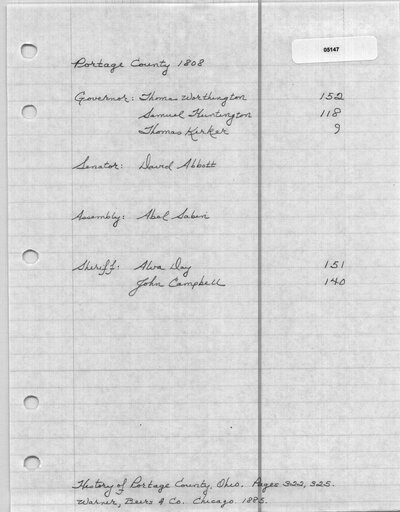 05147
Portage County 1808
Governor: Thomas Worthington 152
Samuel Huntington 118
Thomas Kirker 9
Senator: David Abbott
Assembly: Abel Sabin
Sheriff: Alva Day 151
John Campbell 140
History of Portage County, Ohio. Pages 322, 325.
Warner, Beers & Co. Chicago. 1885.